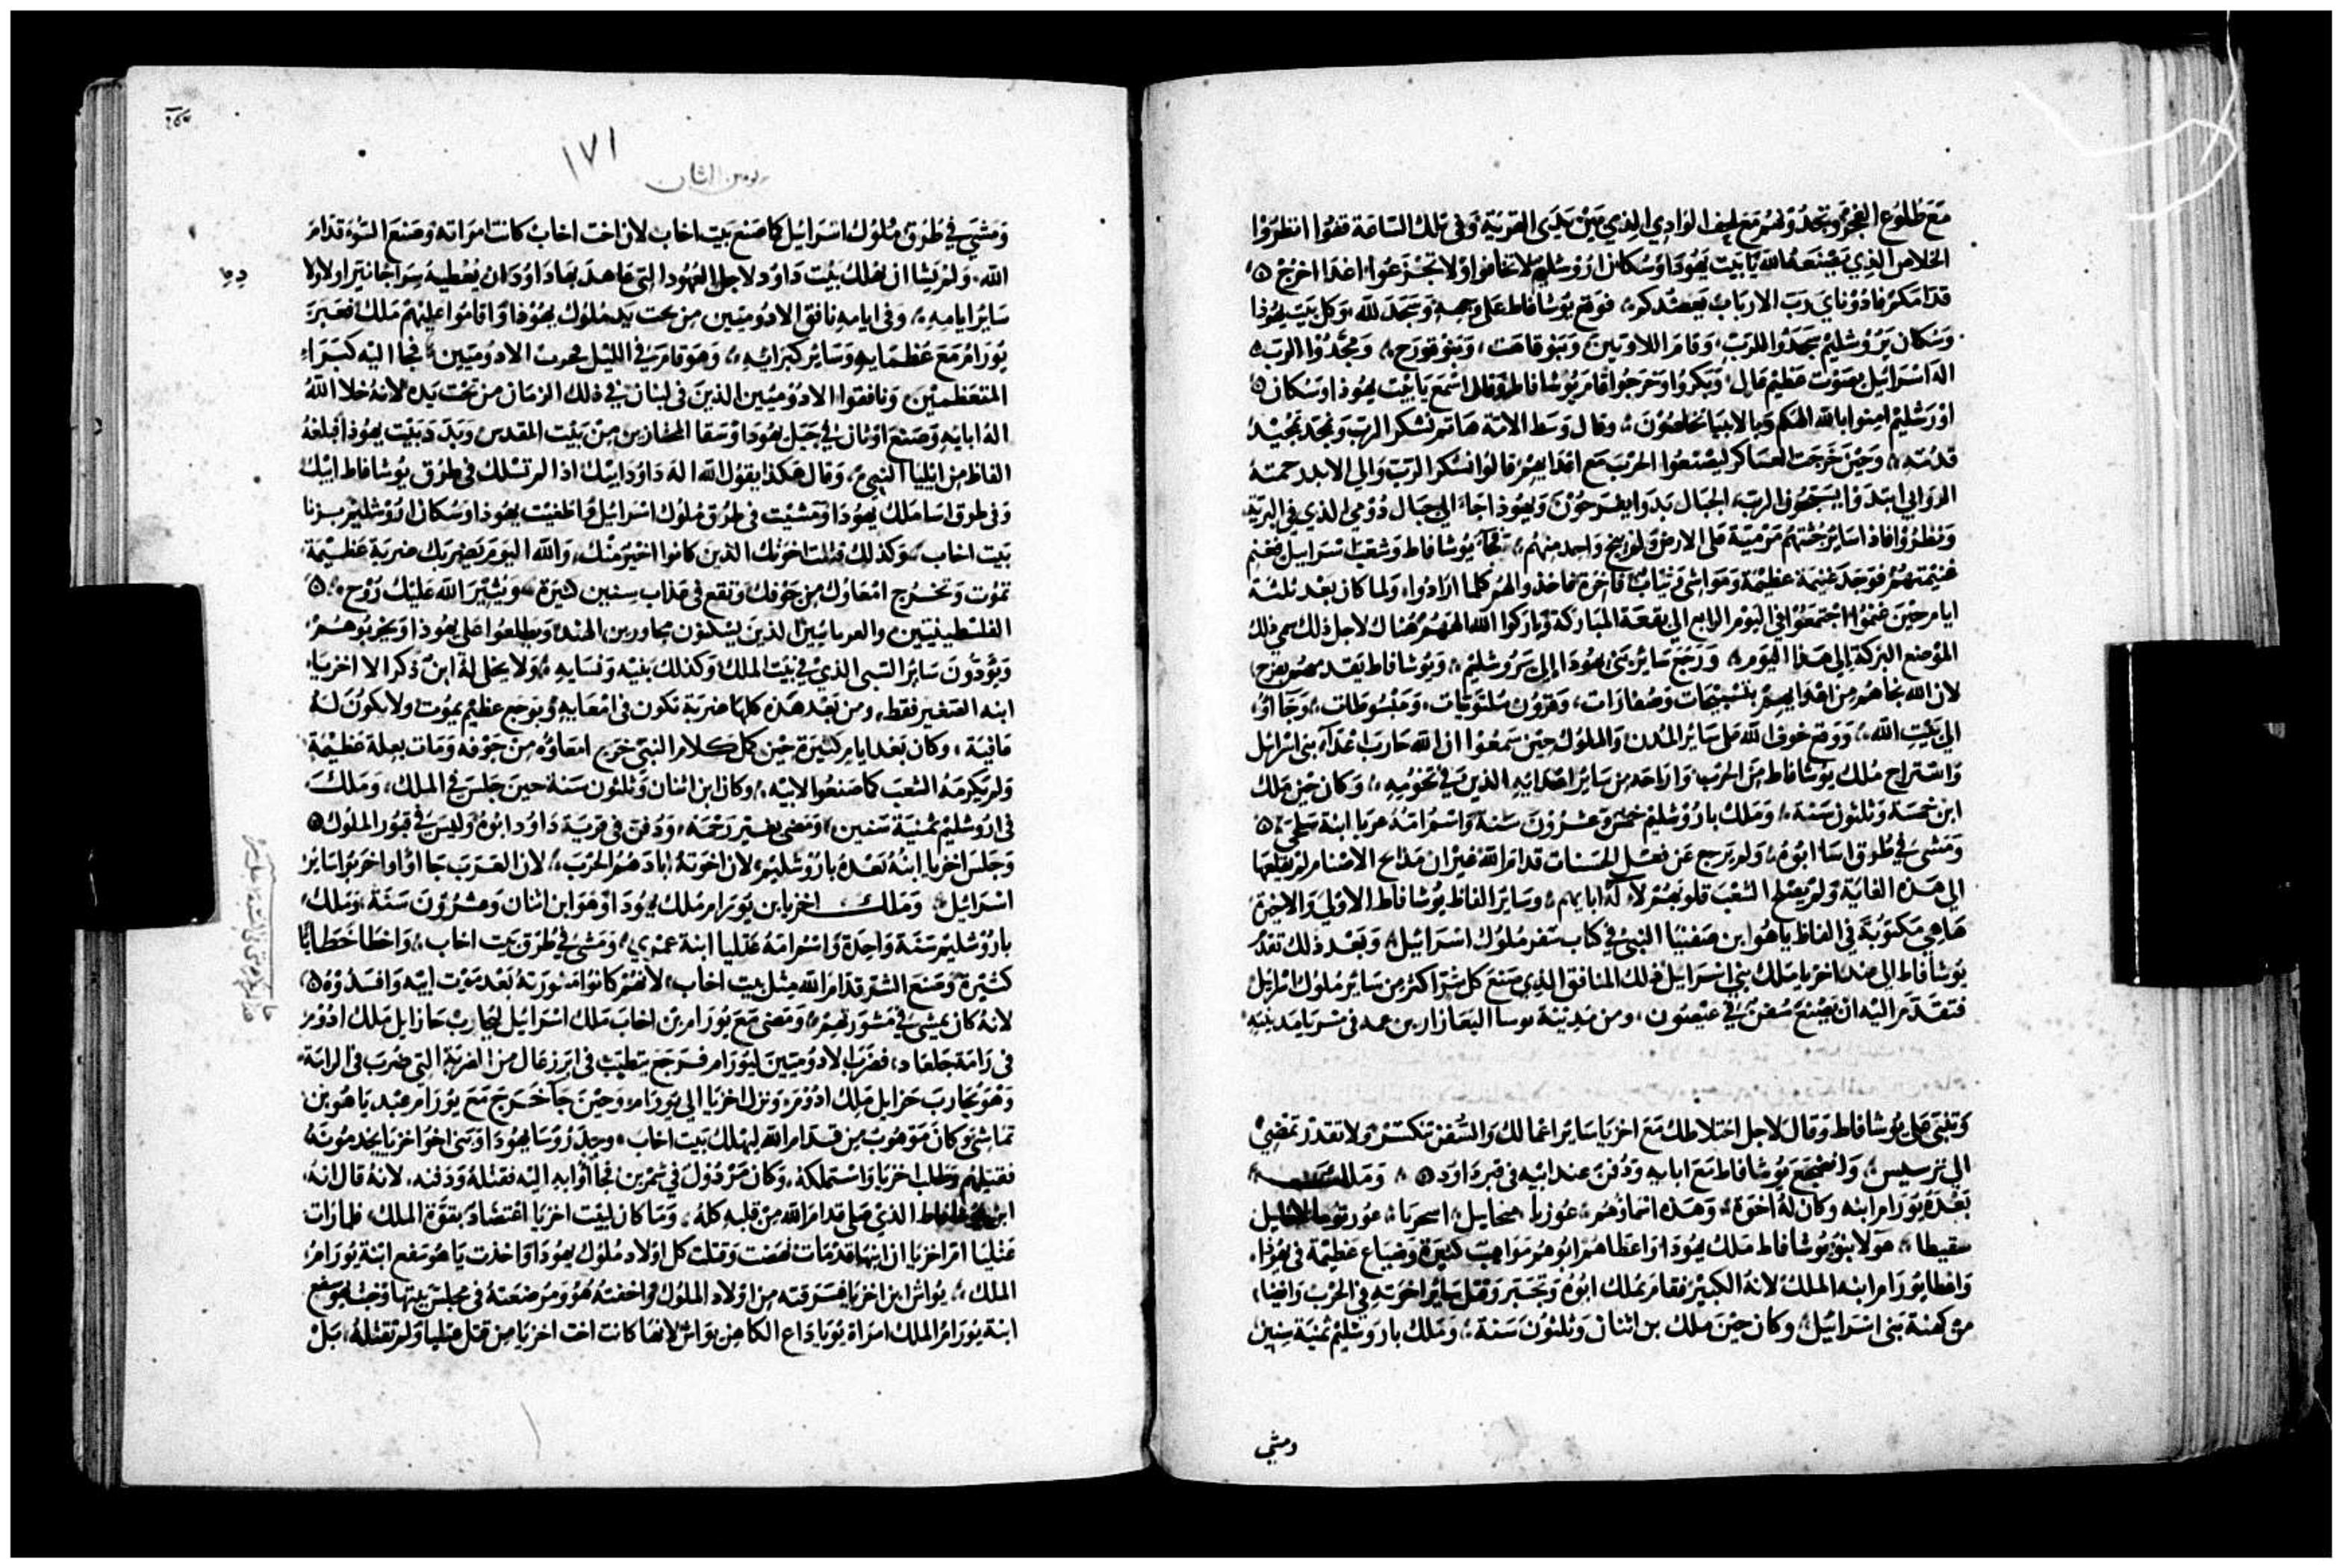 مَع طلوُع الفجر وتجدُونهم مَع ليف الوَادِي الذِي بَين يَدَى القرنيَة وَفى تلك السَاعَة قفوُا انظرَوُا
الخلاص الذِي يَصْنَعهُ الله يَا بَيت يَهوُدَا وَسُكان ارُوُشليم لا تخافوا وَلا تجْزعُوا اغدا اخرُجُ
قدامكم فادوُناي رَب الارباب يَعضدكم، فوَقع يوُشافاط عَلى وَجههِ وَسَجَد لله وَكل بَيت يهوُذا
وَسُكان يَرُوشليم سَجدُوا للرَب، وَقامَ اللاويين وَبنو قاهَت، وَبَنو قورَح، وَمجّدُوُا الرَبّ
اله اسْرَائيل بصَوت عَظيم عَال وَبكرُوا وَخرَجوُا قامَ يوُشافاط وقال اسْمَع يَا بَيت يهوُذا وَسُكان
اوُرَشليم امِنوا بالله الهَكم وَبالانبيَا تخلصُون، وقال وَسَط الامَة هَاتم نشكر الرَب وَنمجد تمجيد
قدُسَه، وَحيْن خَرجَت العسَاكر ليصْنعُوا الحَرْب مَع اعدَايهم قالوُا نشكر الرَبّ وَالي الابد رحمتهُ
الرَوَابي ابتدَوا يسَبّحُون الرب، الجبَال بَدَوا يفرَحُوْن وَيهوذا جَا الي جبَال دوُمي الذي في البَريّة
وَنظرُوُا فاذا سَاير جُثثهم مَرميّة عَلى الارض وَلم ينج واحِد منهُم، فجا يوُشافاط وَشعْب اسرَاييل فغنم
غنيمَتهم فوَجَد غنيمَة عظيمَة وَموَاشي وَثيَاب فاخرَة فاخذوا لهم كلما ارَادوا، ولما كان بَعْد ثلثة
ايام حيْن غنمُوا اجْتمعُوُا في اليَوْم الرابع الي بقعَة المبَاركة وَباركوا الله الههُم هُناك لاجل ذلك سمي ذلك
الموْضع البَركة الي هَذا اليَوم، وَرَجع سَاير بَني يهوُدَا إلى يرُوشليم، وَيُوشافاط يَقدمهم بفرح
لان الله نجاهُم مِن اعْدَايهم بتسْبيحَات وَصُفارَات، وَقرُون مُلتويَات، وَمَبْسُوطَات، وَجَاوُا
الي بَيْتِ الله، وَوقع خوف الله عَلى سَائر المدُن وَالملوُك حِين سَمعُوْا ان الله حَارَب اعْدَا بني اسْرَائيل
وَاسْترَاح مُلك يوُشافاط مِن الحَرب وَارَاحَه مِن سَائر اعدَايهِ الذين في تخومِهِ، وَكان حَيْن مَلك
ابن خمسَة وَثلثون سَنة، وَملك باروُشليم خمسْ وَعشرُوُنَ سَنة وَاسم امّهُ عربَا ابنة سَلحي
وَمَشى في طرُق اسَا ابوُه، وَلم يَرجع عَن فعْل الحسَنات قدام الله غير ان مَذابح الاصْنام لم يقلعهَا
الي هَذه الغايَة وَلم يصلح الشعْب قلوبهُم لاله ابَايهم، وسَاير الفاظ يوُشافاط الاولي وَالاخيرة
هَاهي مَكتوبَة في الفاظ يَاهُو ابن صَفنيَا النبي في كتاب سَفر مُلوك اسْرَائيل، وَبَعْد ذلك تقدم
يوُشافاط الي عند اخزيا مَلك بني اسْرَاييل ذلك المنافق الذِي صَنع كل شرّ اكثر مِن سَاير مُلوك اسْرَايل
فتقدَم اليْه ان يصْنع سُفن في عَيْصُون، ومن مَدينة
وَتنبى عَلى يوُشافاط وَقال لاجل اختلاطك مَع اخزيا سَاير اعمالك وَالسُفن تنكسر وَلا تقدر تمضي
الي ترسيس، وَاضجَع يوُشافاط مَع ابايه وَدُفن عند ابيه في قبر داود، وَمَلك
بَعْدَهُ يوُرَام ابنه وكان لهُ اخوَة، وَهَذه اسماؤهُم، عُوزيا
سفيطا، هَولا بنوُ يوُشافاط مَلك يهوُدَا وَاعطاهم ابُوهُم مَوَاهب كثيرَة وضيَاع عَظيمَة في يهوذا
وَاعْطا يوُرَام ابنه الملك لانهُ الكبير فقام بملك ابوُه وَتجَبر وَقتل سَاير اخوَته في الحَرْب وَافنا
من كهنة بَنى اسْرَائيل، وكان حيْن مَلك بن اثنان وَثلثوُن سَنة، وَمَلك باروُشليْم ثمنية سِنين
ومشي
١٧١
يومين الثان
وَمَشى في طرُق مُلوُك اسْرَائيل كما صَنع بَيت اخاب لان اخت اخابْ كانت امرَاته وَصَنع السُوْء قدام
الله، وَلم يَشا ان يهلك بَيْت دَاوُد لاجل العهُود التي عَاهد بهَا دَاوُدَ ان يُعْطيهُ سِرَاجًا نيرًا وَلاولادهِ
سَايْر ايامِهِ، وَفى ايامِه نافق الادُوميّين مِن تحت يَد مُلوُك يهوُذا وَاقامُوا عَليْهِم مَلك فعَبَر
يوُرَام مَعَ عُظمايهِ وَسَاير كبرَايه، وَهوَ قام في الليْل يُحرب الادوُميّين، فجا اليْه كبَرَاء
المتعَظمين وَنافقوا الادوُميّين الذين في لبنان في ذلك الزمَان من تحْت يَده لانهُ خلا الله
اله ابايهِ وَصَنع اوثان في جَبَل يهوُدا وَسَقا المحازبن مِن بَيْت المقدس وَبَدد بَيْت يهوُذا فبلغهُ
الفاظ مِن ايْليا النبي، وَقال هَكذا يَقوُل الله اله دَاوُد ابيْك اذ لم تسْلك في طرُق يوُشافاط ابيْك
وَفى طرق اسَا مَلك يهوُدَا وَتمشيْت في طرُق مُلوك اسْرَائيل وَاطغيْت يهوذا وَسُكان ارُوْشليم بزنا
بَيت اخاب، وَكذلك قتلت اخوَتك الذين كانوا اخيَر منْك، وَالله اليَوم يَضربك ضربَة عَظيْمَة
تموُت وَتخرُج امْعَاوُك مِن جَوفك وَتقع في عذاب سِنين كثيرَة، وَيُثيْر الله عَليْك رُوْح
الفلسْطينيين والعربانيين الذين يسْكنوُن مجاورين الهند وَيطلعوا عَلى يهوُذا وَيحربوهُم
وَيؤدّون سَاير السَبى الذي في بَيْت الملك وَكذلك بَنيْه وَنسَايه، وَلا يخلى لهُ ابن ذكر الا اخزيَا
ابنه الصَغير فقط، ومن بَعْد هَذه كلها ضربَة تكون في امْعَايهِ وَبوَجع عظيم يموُت ولا يكون لهُ
عَافيَة، وكان بَعْد ايام كثيرَة حيْن كمل كلام النبي خرج امعاوُه مِنْ جَوْفه وَمَات بعلة عَظيْمَة
وَلم يكرمَهُ الشعب كما صَنعُوا لابيْه، وكان ابن اثنان وَثلثون سَنة حين جَلسَ في الملك، وَمَلك
في ارُوشليم ثمنيَة سَنين، وَمَضى بغيْر رَحْمَة، وَدُفن في قريَة دَاوُد ابوُه وَليسَ في قبُور الملوُك
وَجَلسَ اخزيا ابنهُ بَعْدهُ باروُشليم، لان اخوَتهُ ابادَهُم الحَرب، لان العَرَب جَاوُا وَاخرَبوُا سَاير
اسْرَائيل، وَمَلك اخزيا بن يوُرَام مُلك يهوُدَا وَهوَ ابن اثنان وَعشرُوُن سَنة، وَمَلك
باروُشليم سَنَة وَاحِدَة وَاسْم امّهُ عَثليا ابنة عمْري، وَمَشى في طرُق بَيت اخاب، وَاخطا خطايًا
كثيرَة وَصَنع الشر قدَام الله مِثل بَيت اخاب، لانهُم كانوا مَشورَتهُ بَعْد مَوْت ابيْه وَافسَدُوُه
لانهُ كان يمشي في مَشورَتهم، وَمَضى مَعَ يوُرَام بن اخاب مَلك اسْرَائيل ليحَارب حَازايل مَلك ادوُم
في رَامَة جَلعاد، فضرَب الادوُميّين ليوُرَام فرَجَع يتطبب في ايزرعَال من الضربَة التي ضُربَ في الرامَة
وَهوَ يحارب حَزايل مَلك ادوُم، وَنزل اخزيا الي يوُرَام، وَحيْن جَا خَرج مَع يوُرَام عبد ياهو بن
نماشى وَكان مَوْهوُب من قدام الله ليهلك بَيت اخاب، وجد رُوسَا يهوُدَا وَبني اخوَا اخزيا
فقتلهم وَطلب اخزيا وَاسْتملكهُ، وَكان مَرْذول في سَمرين، فجاوُا به اليْه فقتلهُ وَدَفنه، لانهُ قال انهُ
ابن يوُشافاط الذي صلى قدام الله مِن قلبهِ كلهُ، وَمَا كان لبيْت اخزيا اعْتضاد بقوَّة الملك، فلما رَات
عَثليا ام اخزيا ان ابنهَا قد مَات نهَضت وَقتلت كل اوْلاد مُلوُك يهوُدَا وَاخذت يَاهو سَفع ابْنة يوُرَام
الملك، يوُاش ابن اخزيا فسَرَقته مِن اوْلاد الملوُك وَاخفتهُ هُوَ وَمُرضعَتهُ فى مجلسَ بيتهَا وَخبَا
ابنة يوُرَام الملك امرَاة يوُيادَاع الكاهِن يوَاش لانهَا كانت اخت اخزيا مِن قبل عثليا وَلم تقتلهُ، بَلْ